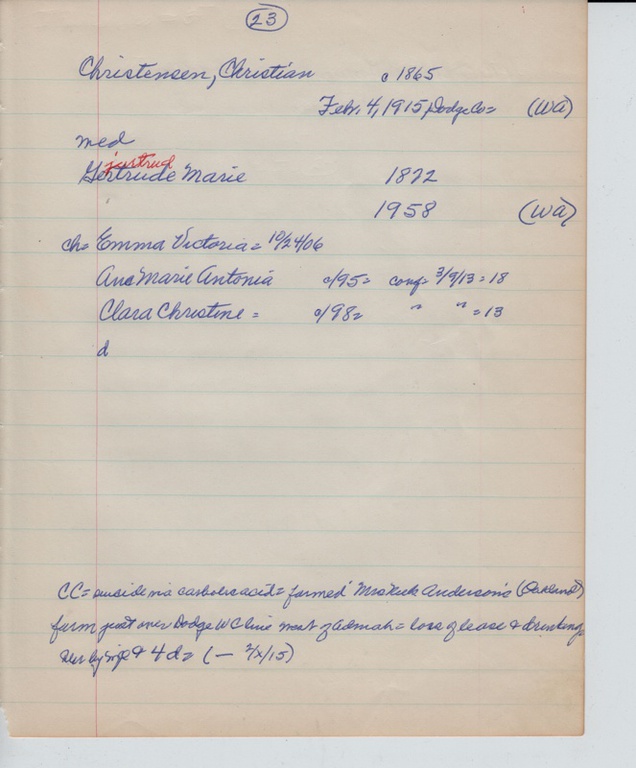 23
Christensen, Christian c 1865
Feb. 4, 1915, Dodge Co= (WA)
med
jertrud
Gertrude Marie 1872
1958 (WA)
ch= Emma Victoria = 10/24/06
Ane Marie Antonia c/95= conf= 3/9/13 = 18
Clara Christine = c/98= " " = 13
d
CC= suicide via carbolic acid = farmed Mrs Anderson's (Oakland)
farm just over Dodge WC line west of Admah = loss of lease & drinking
Sur by wife & 4 d= (— 2/x/15)